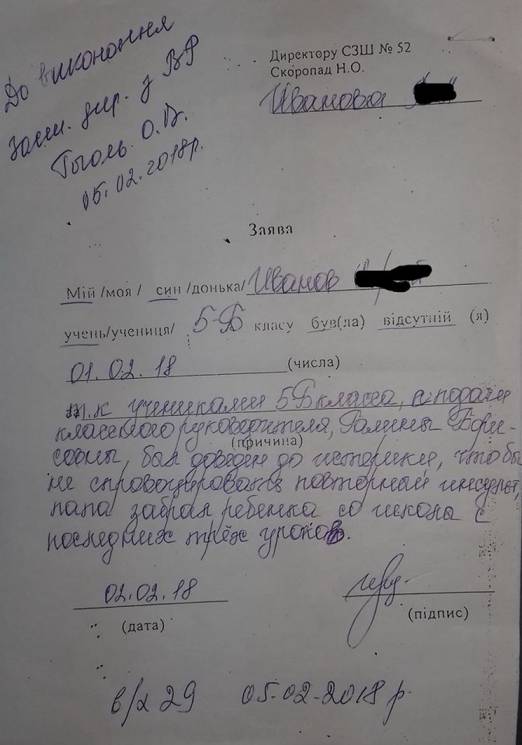 До виконання
Заст. дир. з ВР
Гоголь О.В.
05.02.2018р.
Директору СЗШ № 52
Скоропад Н.О.
Иванова
Заява
Мій /моя / син /донька/ Иванов
учень/учениця/ 5-Б класу був(ла) відсутній (я)
01.02.18 (числа)
т.к учениками 5Б класса, с подачи
классного руководителя, Галины Бори-
(причина)
совны, был доведен до истерики, чтобы
не спровоцировать повторный инсульт,
папа забрал ребенка со школы с
последних трёх уроков.
02.02.18
(дата)
(підпис)
в/х 29 05-02-2018 р.